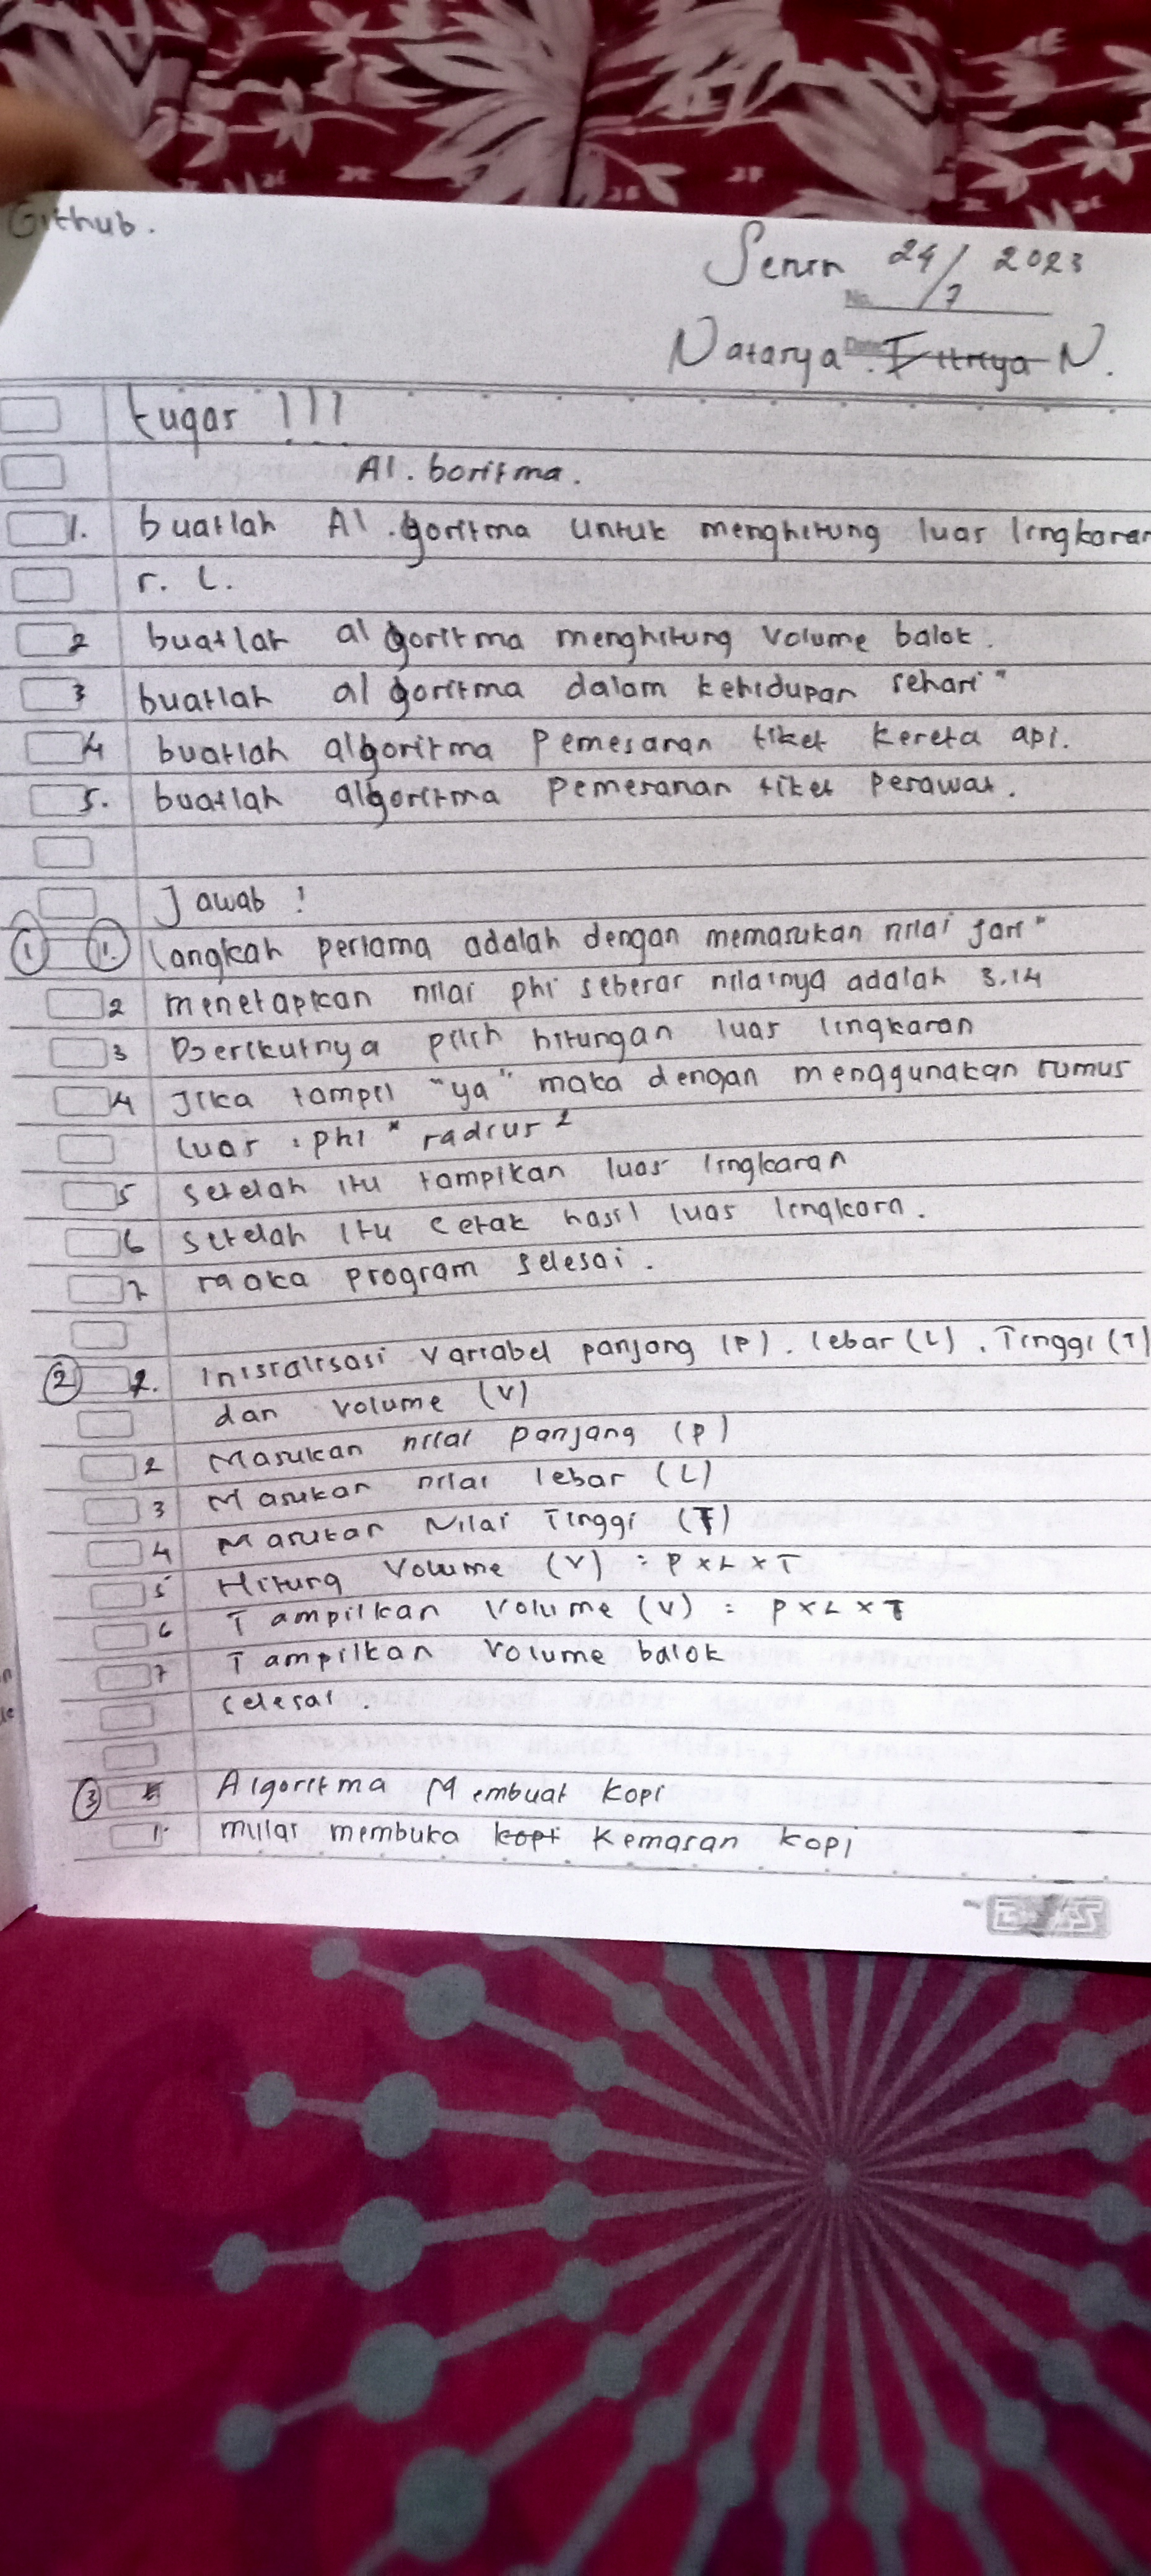 Github.
Senin 24/7 2023
No.
Natasya Date: Fitriya N.
tugas !!!
Al. boritma.
1. buatlah Al.goritma untuk menghitung luas lingkaran
r. L.
2 buatlah algoritma menghitung volume balok.
3 buatlah algoritma dalam kehidupan sehari"
4 buatlah algoritma Pemesanan tiket kereta api.
5. buatlah algoritma Pemesanan tiket Pesawat.
Jawab !
① 1. langkah pertama adalah dengan memasukan nilai jari"
2 menetapkan nilai phi sebesar nilainya adalah 3.14
3 Berikutnya pilih hitungan luas lingkaran
4 Jika tampil "ya" maka dengan menggunakan rumus
luas : phi * radius ²
5 setelah itu tampikan luas lingkaran
6 setelah itu cetak hasil luas lingkarn.
7 maka program selesai.
② 1. Inisialisasi Variabel panjang (P). lebar (L). Tinggi (T)
dan volume (V)
2 Masukan nilai panjang (P)
3 Masukan nilai lebar (L)
4 Masukan Nilai Tinggi (T)
5 Hitung Volume (V) : P x L x T
6 Tampilkan Volume (V) = P x L x T
7 Tampilkan Volume balok
selesai.
③ Algoritma Membuat Kopi
1. mulai membuka kopi Kemasan kopi